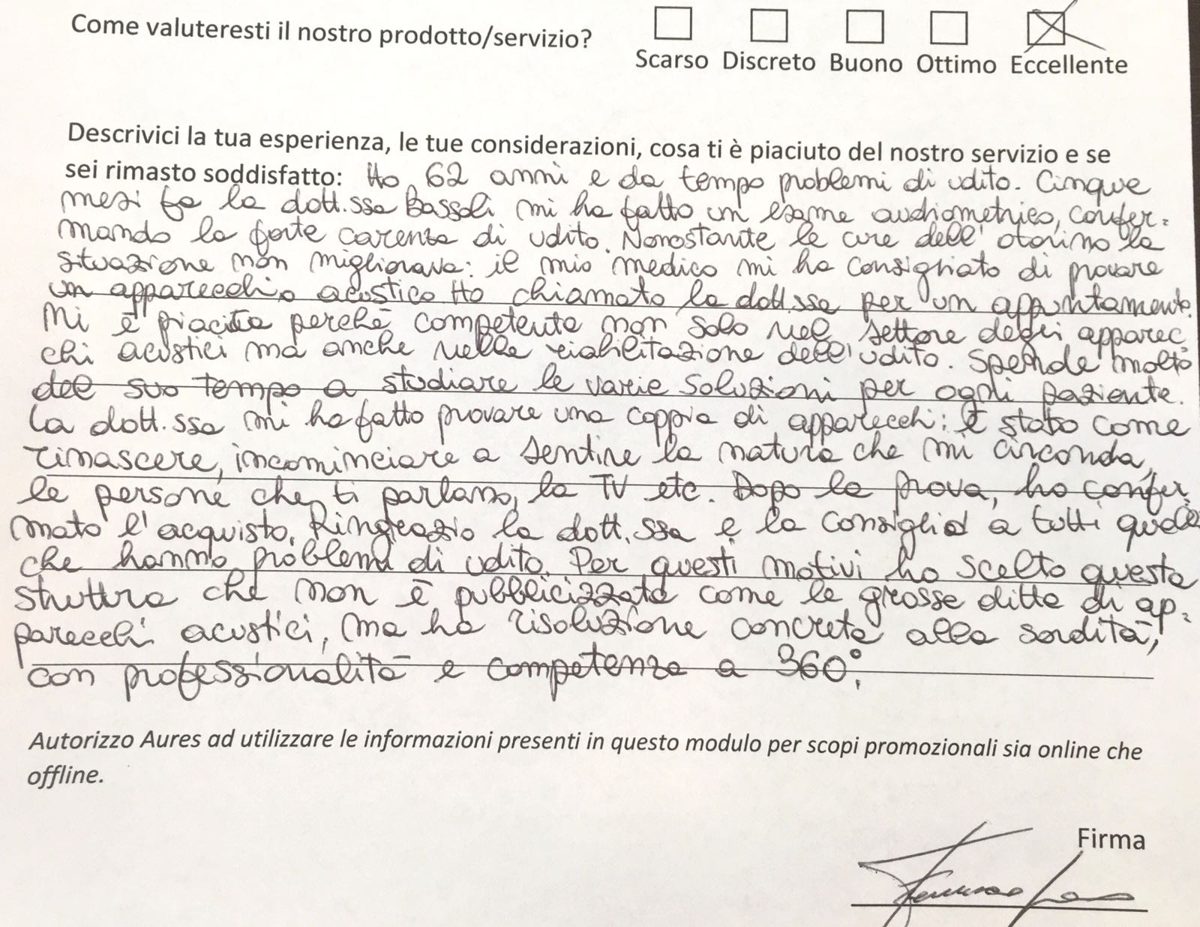 Come valuteresti il nostro prodotto/servizio?
Scarso Discreto Buono Ottimo Eccellente
Descrivici la tua esperienza, le tue considerazioni, cosa ti è piaciuto del nostro servizio e se
sei rimasto soddisfatto: Ho 62 anni e da tempo problemi di udito. Cinque
mesi fa la dott.ssa Bassoli mi ha fatto un esame audiometrico, confer=
mando la forte carenza di udito. Nonostante le cure dell'otorino la
situazione non migliorava: il mio medico mi ha consigliato di provare
un apparecchio acustico Ho chiamato la dott.ssa per un appuntamento.
Mi è piaciuta perchè competente non solo nel settore degli apparec
chi acustici ma anche nella riabilitazione dell'udito. Spende molto
del suo tempo a studiare le varie soluzioni per ogni paziente.
La dott.ssa mi ha fatto provare una coppia di apparecchi: è stato come
rinascere, incominciare a sentire la natura che mi circonda,
le persone che ti parlano, la TV etc. Dopo la prova, ho confer
mato l'acquisto. Ringrazio la dott.ssa e la consiglio a tutti quelli
che hanno problemi di udito. Per questi motivi ho scelto questa
struttra che non è pubblicizzata come le grosse ditte di ap=
parecchi acustici, ma ha risoluzione concreta alla sordità,
con professionalità e competenza a 360°.
Autorizzo Aures ad utilizzare le informazioni presenti in questo modulo per scopi promozionali sia online che
offline.
Firma